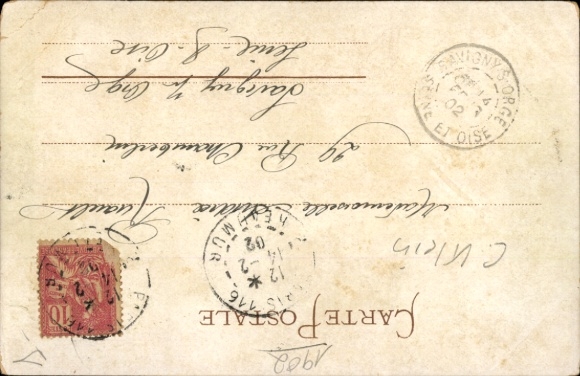 1902
CARTE POSTALE
C Klein
PARIS 116
*
12
14 -2
02
REAUMUR
10
Mademoiselle Ruault
29 Rue Chamberlin
Savigny s/ Orge
Seine-&-Oise
SAVIGNY-S-ORGE
14
02
SEINE ET OISE